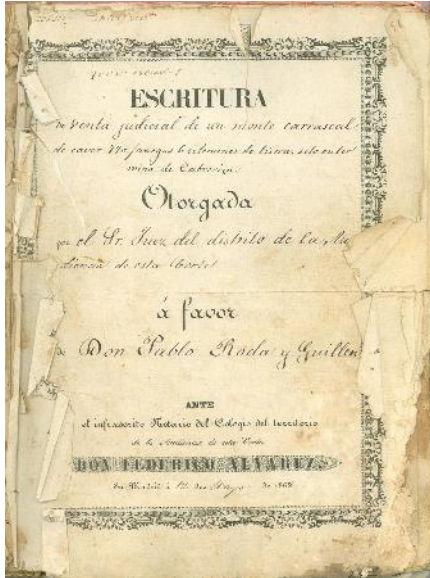 ESCRITURA
de venta judicial de un monte carrascal
de caver 170 fanegas 6 celemines de tierra, sito en ter
mino de
Otorgada
por el Sr. Juez del distrito de la Au
diencia de esta Corte
á favor
de Don Pablo Roda y Guillen
ANTE
el infrascrito Notario del Colegio del territorio
de la Audiencia de esta Corte
DON FEDERICO ALVAREZ
En Madrid á de Mayo de 1862